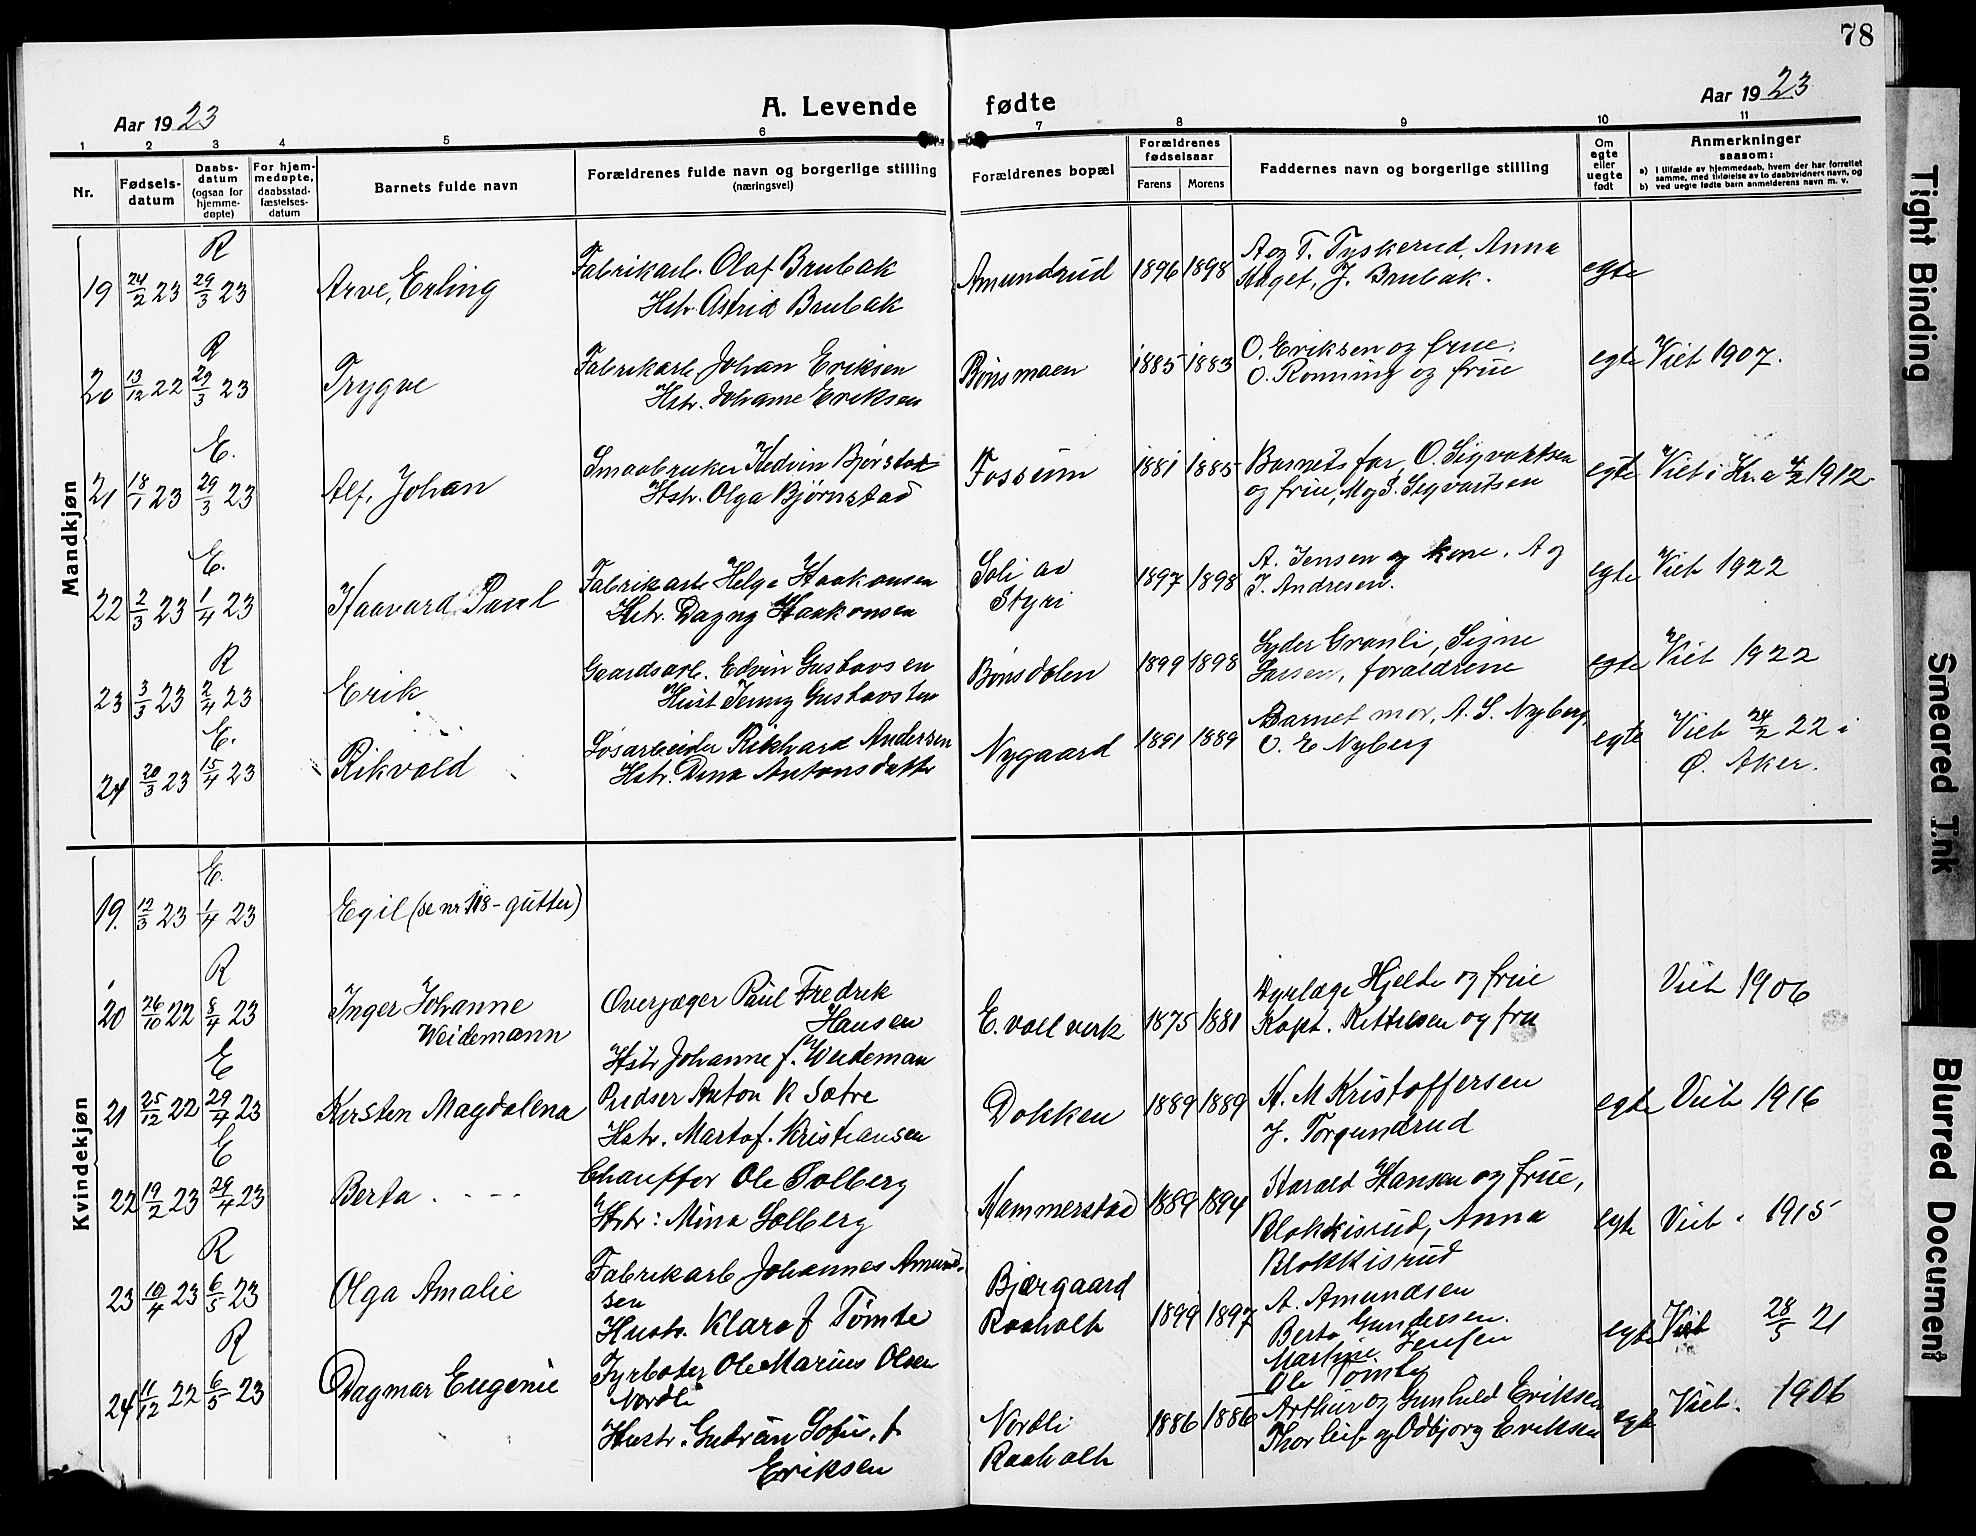 78
Aar 1923
A. Levende fødte
Aar 1923
1 2 3 4 5 6 7 8 9 10 11
Nr.
Fødsels-
datum
Daabs-
datum
(ogsaa for
hjemme-
døpte)
For hjem-
medøpte,
daabsstad-
fæstelses-
datum
Barnets fulde navn
Forældrenes fulde navn og borgerlige stilling
(næringsvei)
Forældrenes bopæl
Forældrenes
fødselsaar
Farens Morens
Faddernes navn og borgerlige stilling
Om
egte
eller
uegte
født
Anmerkninger
saasom:
a) I tilfælde av hjemmedaab, hvem der har forrettet
samme, med tilføielse av to daabsvidners navn, og
b) ved uegte fødte barn anmelderens navn m. v.
Mandkjøn
R
19 24/2 23 29/3 23 Arve, Erling
Fabrikarb. Olaf Brubak
Hstr. Astrid Brubak
Amundrud 1896 1898
A og T. Tyskerud, Anna
Haget, J. Brubak.
egte
R
20 13/12 22 29/3 23 Trygve
Fabrikarb. Johan Eriksen
Hstr. Johanne Eriksen
Bønsmoen 1885 1883
O. Eriksen og frue.
O. Rønning og frue
egte Viet 1907.
E.
21 18/1 23 29/3 23 Alf, Johan
Smaabruker Hedvin Bjørstad
Hstr. Olga Bjørnstad
Fossum 1881 1885
Barnets far, O. Sigvartsen
og frue, M og S. Sigvartsen
egte Viet i Kr.a 4/2 1912.
E.
22 2/3 23 1/4 23 Haavard Paul
Fabrikarb. Helge Haakonsen
Hstr. Dagny Haakonsen
Soli av
Styri
1897 1898
A. Jensen og kone. A og
J. Andresen.
egte Viet 1922
R
23 3/3 23 2/4 23 Erik
Gaardsarb. Edvin Gustavsen
Hust Jenny Gustavsen
Bønsdalen 1899 1898
Syder Granli, Signe
Larsen, forældrene
egte Viet 1922
E.
24 20/3 23 15/4 23 Rikvald
Løsarbeider Rikhard Andersen
Hstr. Dina Antonsdatter
Nygaard 1891 1889
Barnet mor, A. S. Nyberg,
O. E Nyberg
egte Viet 24/2 22 i
Ø. Aker.
Kvindekjøn
E.
19. 12/3 23 1/4 23 Egil (se nr 18 - gutter)
R
20 26/10 22 8/4 23 Inger Johanne
Weidemann
Overjæger Paul Fredrik
Hansen
Hstr Johanne f. Weideman
E. voll verk 1875 1881
Dyrlæge Hjelde og frue
Kapt. Kittelsen og fru
Viet 1906
E
21 25/12 22 29/4 23 Kirsten Magdalena
Pudser Anton R Sætre
Hstr. Marta f. Kristiansen
Dokken 1889 1889
H. M Kristoffersen
J. Torgundrud
egte Viet 1916
E
22 19/2 23 29/4 23 Berta
Chauffør Ole Solberg
Hstr: Mina Solberg
Hammerstad 1889 1894
Harald Hansen og frue,
Blokkisrud, Anna
Blokkisrud
egte Viet. 1915
R
23 10/4 23 6/5 23 Olga Amalie
Fabrikarb Johannes Amund-
sen
Hustr. Klara f Tømte
Bjærgaard
Raaholt
1899 1897
A. Amundsen
Berta Gundersen.
Martine Jensen
Ole Tømte
egte Viet 28/5 21
R
24 11/12 22 6/5 23 Dagmar Eugenie
Fyrbøter Ole Marius Olsen
Nordli
Hustr. Gudrun Sofie. f
Eriksen
Nordli
Raaholt
1886 1886
Arthur og Gunhild Eriksen
Thorleif og Odbjorg Eriksen
egte Viet. 1906
Tight Binding
Smeared Ink
Blurred Document